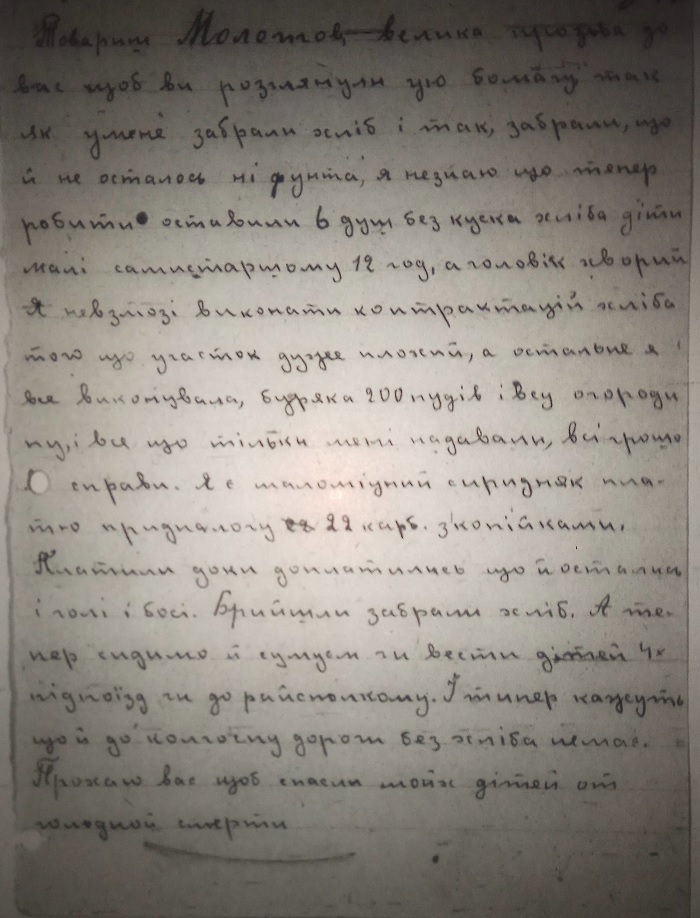 Товариш Молотов, велика прозьба до
вас щоб ви розглянули цю бомагу так
як умене забрали хліб і так, забрали, що
й не осталось ні фунта, я незнаю що тепер
робити. оставили 6 душ без куска хліба діти
малі самистаршому 12 год, а головік хворий
Я невзмозі виконати контрактацій хліба
того що участок дуже плохий, а остальне я
все виконувала, буряка 200 пудів і всу огороди
ну, і все що тільки мені надавали, всі грошо
в справи. Я є маломіцний сиридняк пла-
тю придналогу 22 карб. з'копійками.
Платили доки доплатились що й остались
і голі і босі. Прийшли забрали хліб. А те-
пер сидимо й сумуєм чи вести дітей
підпоїзд чи до райісполкому. І типер кажуть
що й до колгоспу дороги без хліба немає.
Прохаю вас щоб спасли моїх дітей от
голодной смерти